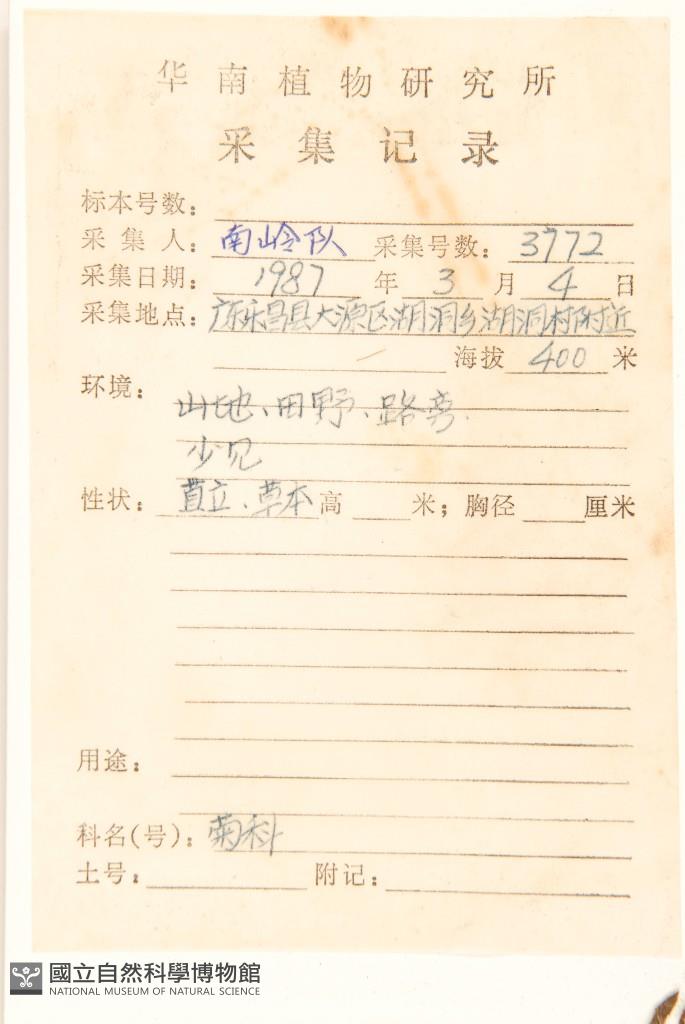 华南植物研究所
采集记录
标本号数：
采集人：南岭队 采集号数：3772
采集日期：1987年3月4日
采集地点：广东乐昌县大源区湖洞乡湖洞村附近
海拔 400 米
环境：山地、田野、路旁.
少见
性状：直立、草本 高 米；胸径 厘米
用途：
科名(号)：菊科
土号： 附记：
國立自然科學博物館
NATIONAL MUSEUM OF NATURAL SCIENCE